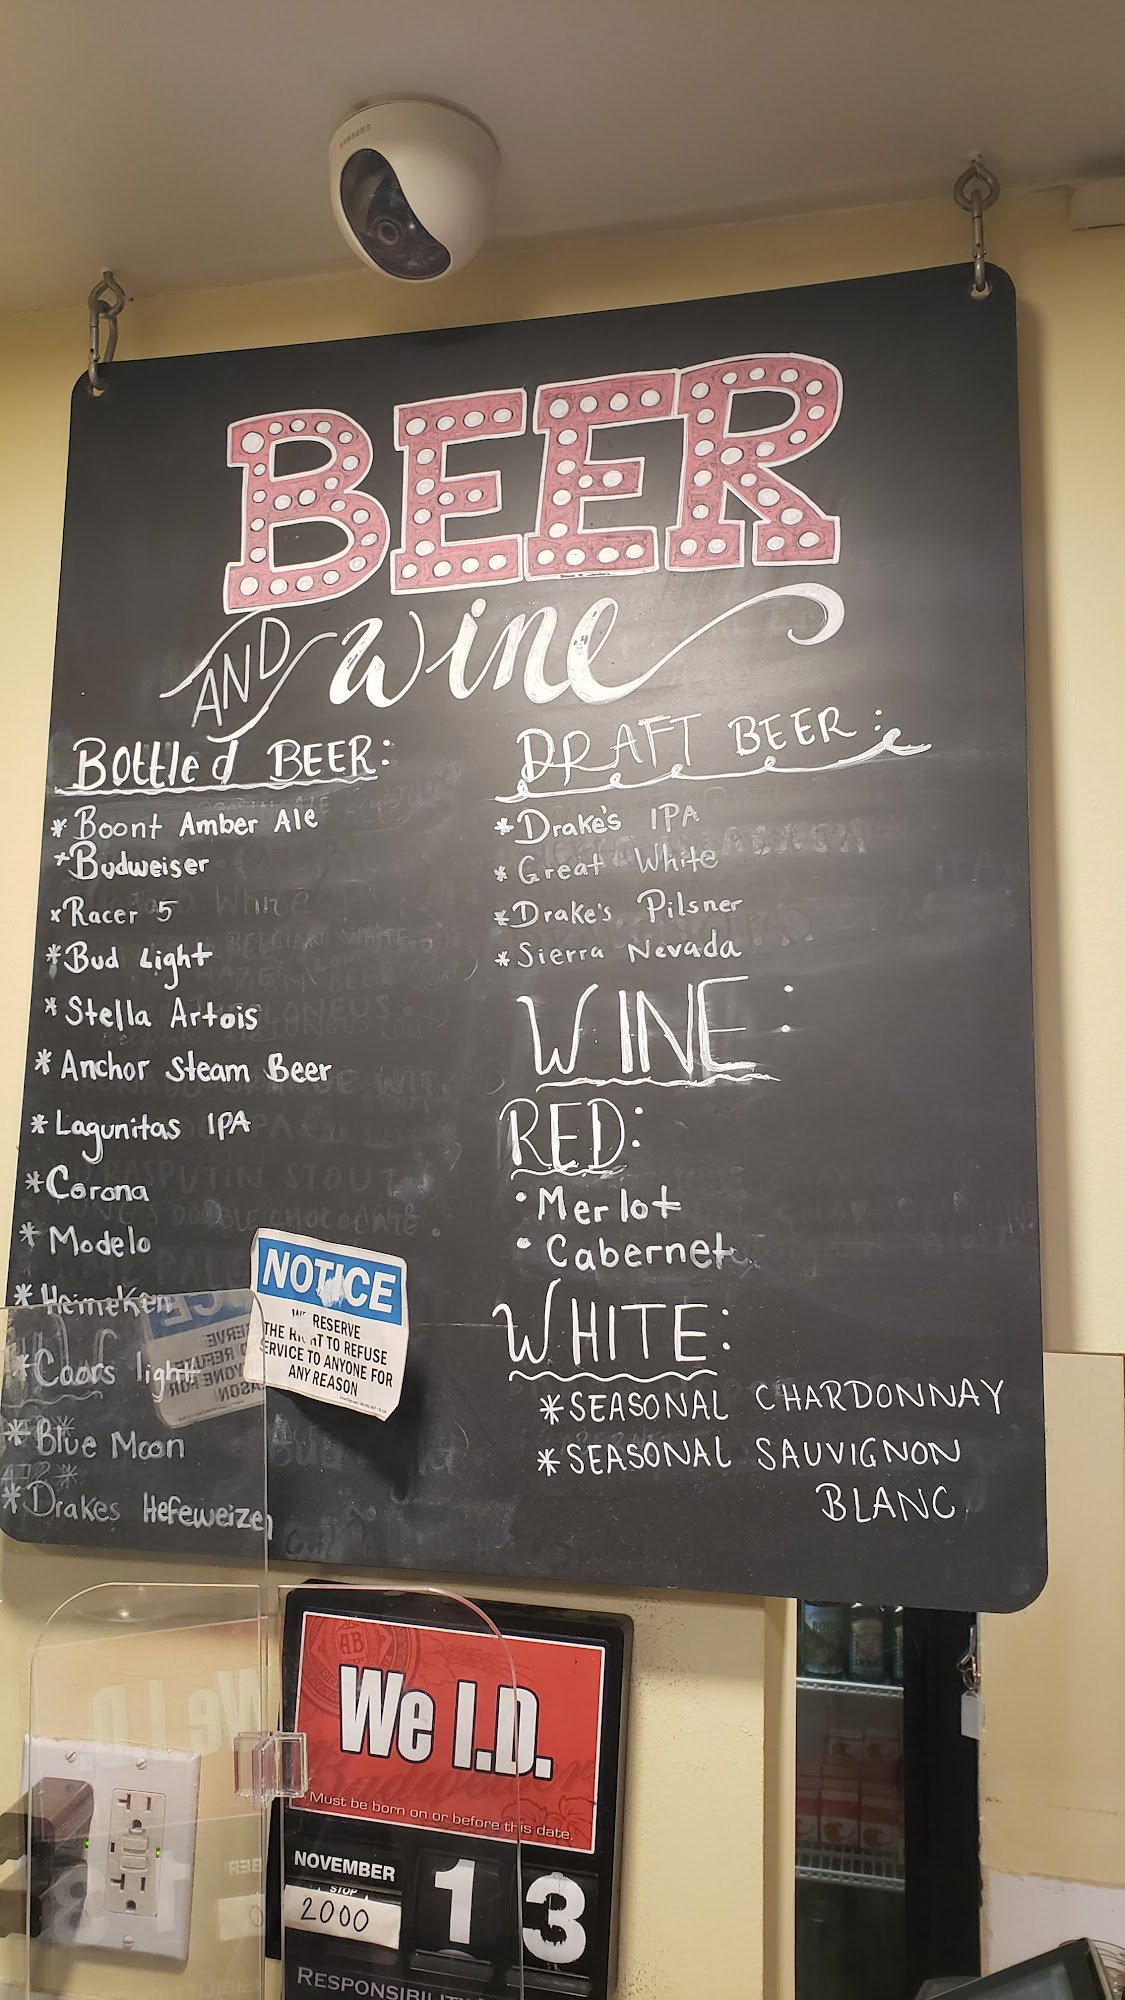 SAMSUNG
BEER
AND wine
Bottled BEER:
* Boont Amber Ale
* Budweiser
x Racer 5
* Bud Light
* Stella Artois
* Anchor Steam Beer
* Lagunitas IPA
* Corona
* Modelo
* Heineken
* Coors light
* Blue Moon
* Drakes Hefeweizen
DRAFT BEER:
* Drake's IPA
* Great White
* Drake's Pilsner
* Sierra Nevada
WINE:
RED:
• Merlot
• Cabernet
WHITE:
* SEASONAL CHARDONNAY
* SEASONAL SAUVIGNON
BLANC
NOTICE
WE RESERVE
THE RIGHT TO REFUSE
SERVICE TO ANYONE FOR
ANY REASON
We I.D.
Budweiser
Must be born on or before this date.
NOVEMBER
STOP
2000
13
RESPONSIBILIT